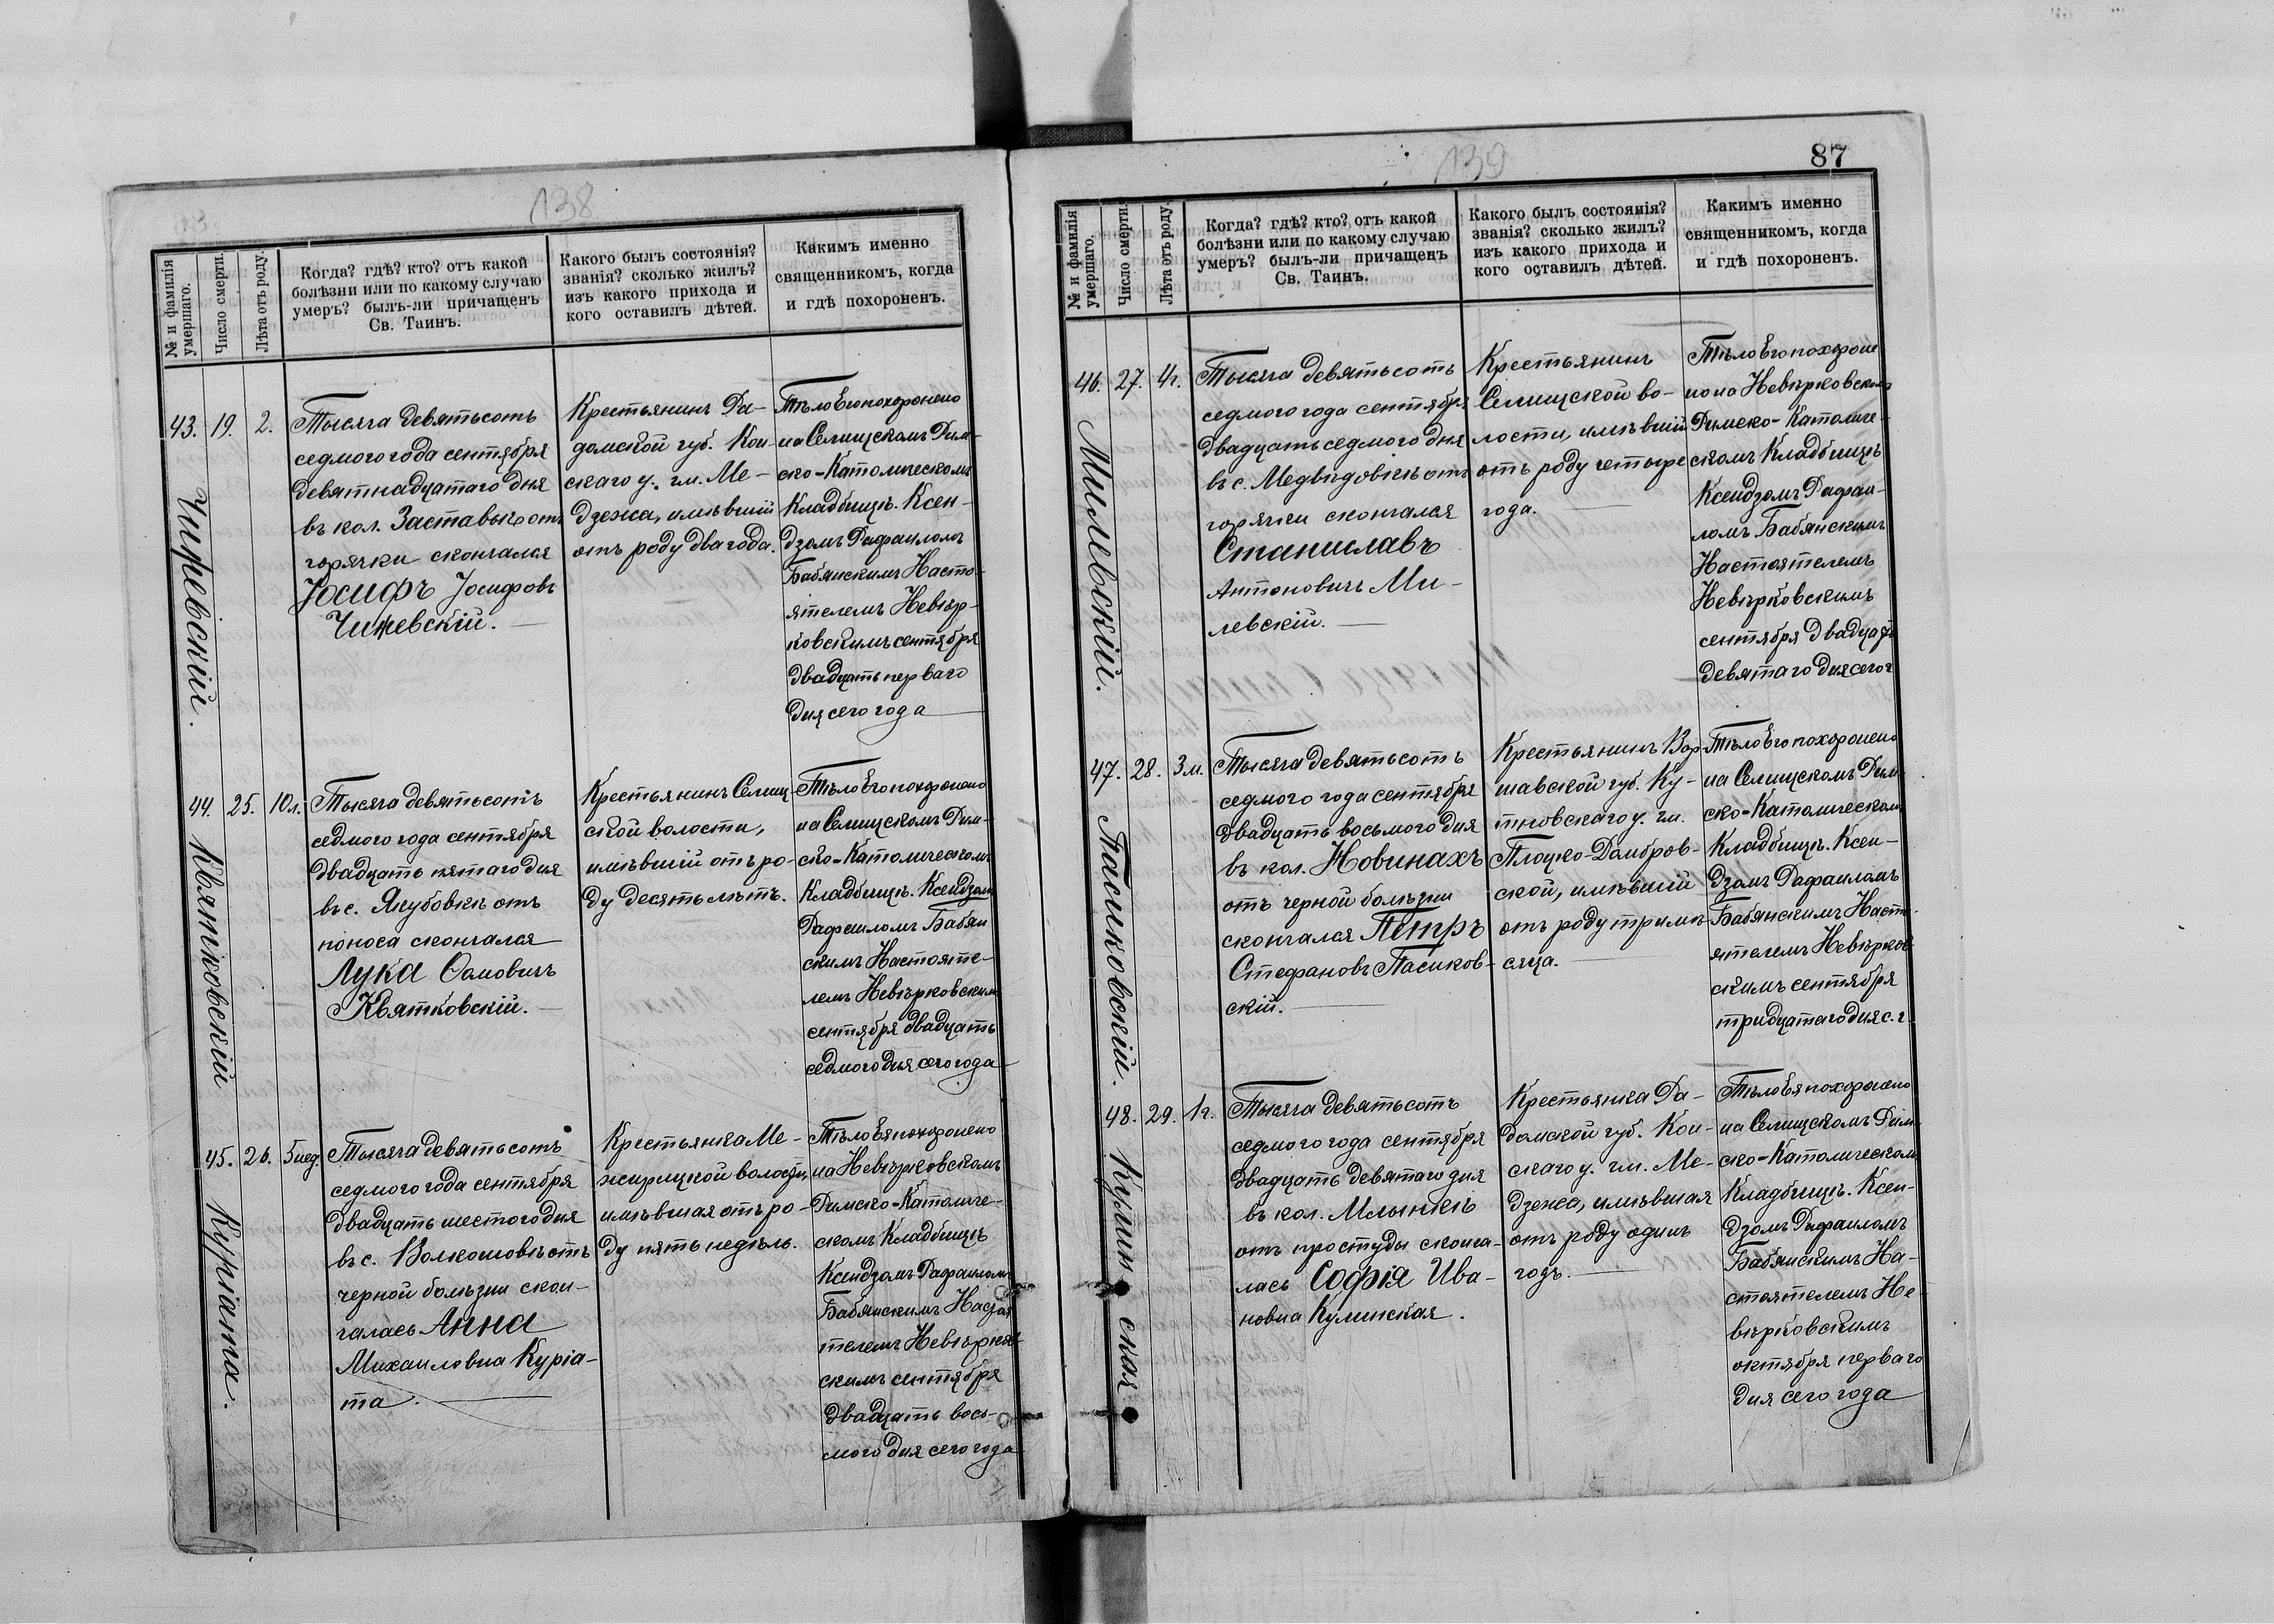 138
№ и фамилія
умершаго.
Число смерти.
Лѣта отъ роду.
Когда? гдѣ? кто? отъ какой
болѣзни или по какому случаю
умеръ? былъ-ли причащенъ
Св. Таинъ.
Какого былъ состоянія?
званія? сколько жилъ?
изъ какого прихода и
кого оставилъ дѣтей.
Какимъ именно
священникомъ, когда
и гдѣ похороненъ.
43.
Чижевскій.
19.
2.
Тысяча девятьсотъ
седмого года сентября
девятнадцатаго дня
въ кол. Заставью отъ
горячки скончался
Іосифъ Іосифовъ
Чижевскій.
Крестьянинъ Ра-
домской губ. Кон-
скаго у. гм. Ме-
дзежа, имѣвшій
отъ роду два года.
Тѣло Его похоронено
на Селищскомъ Рим-
ско-Католическомъ
Кладбищѣ. Ксен-
дзомъ Рафаиломъ
Бабянскимъ Насто-
ятелемъ Невѣр-
ковскимъ сентября
двадцать перваго
дня сего года
44.
Квятковскій
25.
10 л.
Тысяча девятьсотъ
седмого года сентября
двадцать пятаго дня
въ с. Якубовкѣ отъ
поноса скончался
Лука Самовичъ
Квятковскій.
Крестьянинъ Селищ-
ской волости,
имѣвшій отъ ро-
ду десять лѣтъ.
Тѣло Его похоронено
на Селищскомъ Рим-
ско-Католическомъ
Кладбищѣ. Ксендзомъ
Рафаиломъ Бабян
скимъ Настояте-
лемъ Невѣрковскимъ
сентября двадцать
седмого дня сего года
45.
Куріата.
26.
5 нед.
Тысяча девятьсотъ
седмого года сентября
двадцать шестого дня
въ с. Волкошовѣ отъ
черной болѣзни скон-
чалась Анна
Михаиловна Куріа-
та.
Крестьянка Ме-
жирицкой волости,
имѣвшая отъ ро-
ду пять недѣль.
Тѣло Ея похоронено
на Невѣрковскомъ
Римско-Католиче-
скомъ Кладбищѣ
Ксендзомъ Рафаиломъ
Бабянскимъ Настоя
телемъ Невѣрков
скимъ сентября
двадцать вось-
мого дня сего года
139
87
№ и фамилія
умершаго.
Число смерти.
Лѣта отъ роду.
Когда? гдѣ? кто? отъ какой
болѣзни или по какому случаю
умеръ? былъ-ли причащенъ
Св. Таинъ.
Какого былъ состоянія?
званія? сколько жилъ?
изъ какого прихода и
кого оставилъ дѣтей.
Какимъ именно
священникомъ, когда
и гдѣ похороненъ.
46.
Милевскій.
27.
4 г.
Тысяча девятьсотъ
седмого года сентября
двадцать седмого дня
въ с. Медвѣдовкѣ отъ
горячки скончался
Станиславъ
Антоновичъ Ми-
левскій.
Крестьянинъ
Селищской во-
лости, имѣвшій
отъ роду четыре
года.
Тѣло Его похороне
но на Невѣрковскомъ
Римско-Католиче-
скомъ Кладбищѣ
Ксендзомъ Рафаи-
ломъ Бабянскимъ
Настоятелемъ
Невѣрковскимъ
сентября двадцать
девятаго дня сего г.
47.
Пасиковскій.
28.
3 м.
Тысяча девятьсотъ
седмого года сентября
двадцать восьмого дня
въ кол. Новинахъ
отъ черной болѣзни
скончался Петръ
Стефановъ Пасиков-
скій.
Крестьянинъ Вар-
шавской губ. Ку-
тновскаго у. гм.
Плоцко-Домбров-
ской, имѣвшій
отъ роду три мѣ-
сяца.
Тѣло Его похоронено
на Селищскомъ Рим
ско-Католическомъ
Кладбищѣ. Ксен-
дзомъ Рафаиломъ
Бабянскимъ Насто-
ятелемъ Невѣрков
скимъ сентября
тридцатаго дня с. г.
48.
Кулинская
29.
1 г.
Тысяча девятьсотъ
седмого года сентября
двадцать девятаго дня
въ кол. Млынкѣ
отъ простуды сконча-
лась Софія Ива-
новна Кулинская.
Крестьянка Ра-
домской губ. Кон-
скаго у. гм. Ме-
дзежа, имѣвшая
отъ роду одинъ
годъ.
Тѣло Ея похоронено
на Селищскомъ Рим
ско-Католическомъ
Кладбищѣ. Ксен-
дзомъ Рафаиломъ
Бабянскимъ На-
стоятелемъ Не-
вѣрковскимъ
октября перваго
дня сего года